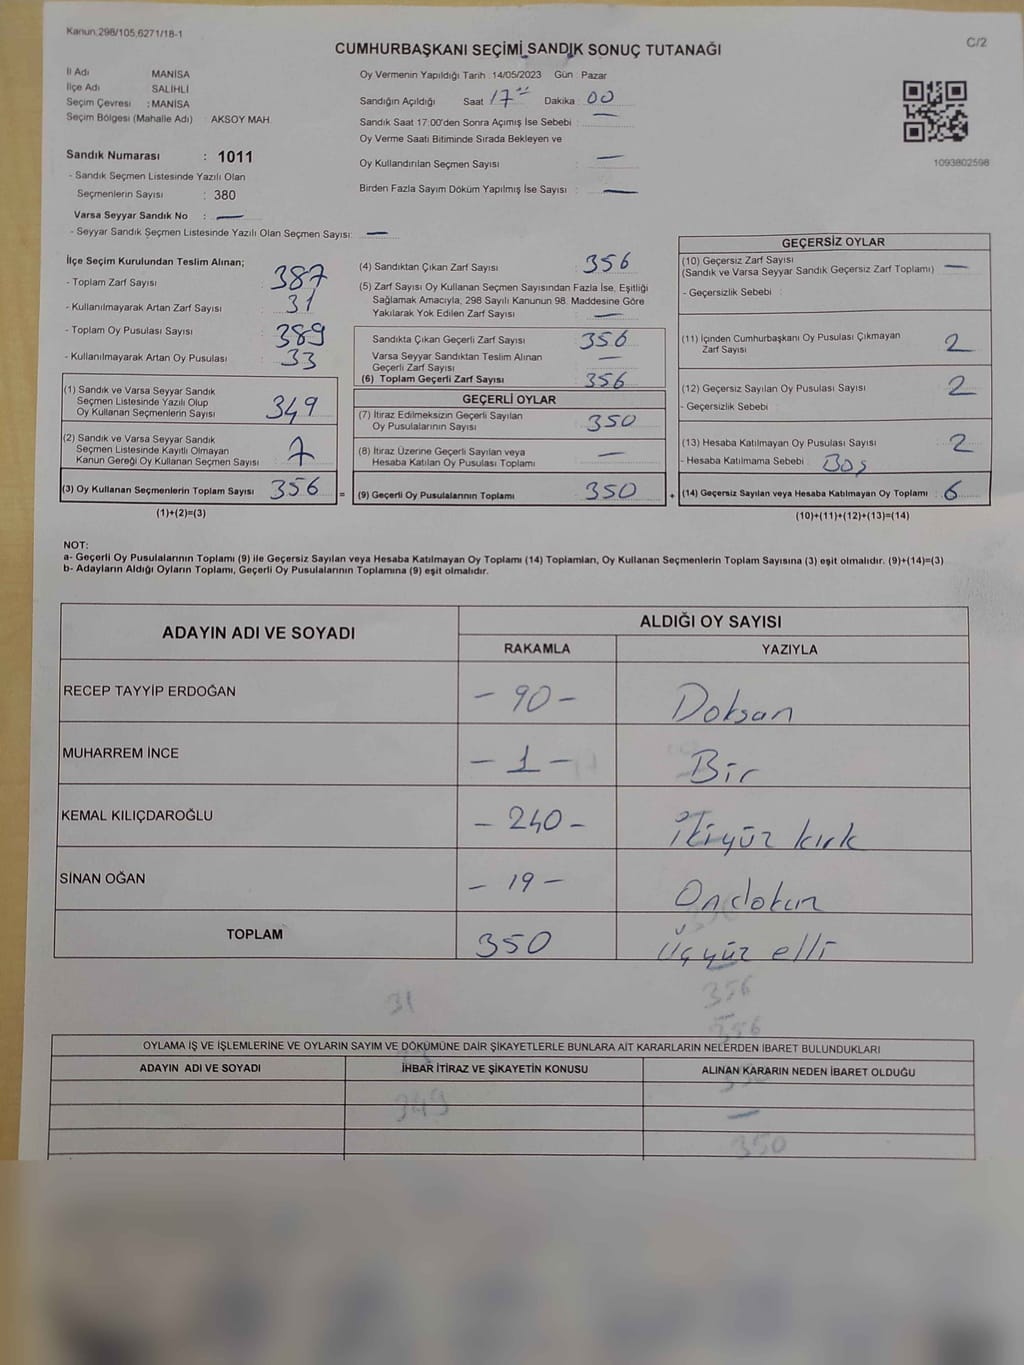 Kanun:298/105,6271/18-1
C/2
CUMHURBAŞKANI SEÇİMİ SANDIK SONUÇ TUTANAĞI
İl Adı MANİSA
İlçe Adı SALİHLİ
Seçim Çevresi : MANİSA
Seçim Bölgesi (Mahalle Adı) : AKSOY MAH.
Sandık Numarası : 1011
- Sandık Seçmen Listesinde Yazılı Olan
Seçmenlerin Sayısı : 380
Varsa Seyyar Sandık No : —
- Seyyar Sandık Seçmen Listesinde Yazılı Olan Seçmen Sayısı: —
Oy Vermenin Yapıldığı Tarih : 14/05/2023 Gün : Pazar
Sandığın Açıldığı Saat 17 Dakika 00
Sandık Saat 17:00'den Sonra Açımış İse Sebebi : —
Oy Verme Saati Bitiminde Sırada Bekleyen ve
Oy Kullandırılan Seçmen Sayısı : —
Birden Fazla Sayım Döküm Yapılmış İse Sayısı : —
1093802598
İlçe Seçim Kurulundan Teslim Alınan;
- Toplam Zarf Sayısı : 387
- Kullanılmayarak Artan Zarf Sayısı : 31
- Toplam Oy Pusulası Sayısı : 389
- Kullanılmayarak Artan Oy Pusulası : 33
(1) Sandık ve Varsa Seyyar Sandık
Seçmen Listesinde Yazılı Olup
Oy Kullanan Seçmenlerin Sayısı : 349
(2) Sandık ve Varsa Seyyar Sandık
Seçmen Listesinde Kayıtlı Olmayan
Kanun Gereği Oy Kullanan Seçmen Sayısı : 7
(3) Oy Kullanan Seçmenlerin Toplam Sayısı : 356 =
(1)+(2)=(3)
(4) Sandıktan Çıkan Zarf Sayısı : 356
(5) Zarf Sayısı Oy Kullanan Seçmen Sayısından Fazla İse, Eşitliği
Sağlamak Amacıyla, 298 Sayılı Kanunun 98. Maddesine Göre
Yakılarak Yok Edilen Zarf Sayısı : —
Sandıkta Çıkan Geçerli Zarf Sayısı : 356
Varsa Seyyar Sandıktan Teslim Alınan
Geçerli Zarf Sayısı : —
(6) Toplam Geçerli Zarf Sayısı : 356
GEÇERLİ OYLAR
(7) İtiraz Edilmeksizin Geçerli Sayılan
Oy Pusulalarının Sayısı : 350
(8) İtiraz Üzerine Geçerli Sayılan veya
Hesaba Katılan Oy Pusulası Toplamı : —
(9) Geçerli Oy Pusulalarının Toplamı : 350 +
GEÇERSİZ OYLAR
(10) Geçersiz Zarf Sayısı
(Sandık ve Varsa Seyyar Sandık Geçersiz Zarf Toplamı) : —
- Geçersizlik Sebebi :
(11) İçinden Cumhurbaşkanı Oy Pusulası Çıkmayan
Zarf Sayısı : 2
(12) Geçersiz Sayılan Oy Pusulası Sayısı : 2
- Geçersizlik Sebebi :
(13) Hesaba Katılmayan Oy Pusulası Sayısı : 2
- Hesaba Katılmama Sebebi : Boş
(14) Geçersiz Sayılan veya Hesaba Katılmayan Oy Toplamı : 6
(10)+(11)+(12)+(13)=(14)
NOT:
a- Geçerli Oy Pusulalarının Toplamı (9) ile Geçersiz Sayılan veya Hesaba Katılmayan Oy Toplamı (14) Toplamları, Oy Kullanan Seçmenlerin Toplam Sayısına (3) eşit olmalıdır. (9)+(14)=(3)
b- Adayların Aldığı Oyların Toplamı, Geçerli Oy Pusulalarının Toplamına (9) eşit olmalıdır.
ADAYIN ADI VE SOYADI ALDIĞI OY SAYISI
RAKAMLA YAZIYLA
RECEP TAYYİP ERDOĞAN - 90 - Doksan
MUHARREM İNCE - 1 - Bir
KEMAL KILIÇDAROĞLU - 240 - İkiyüz kırk
SİNAN OĞAN - 19 - Ondokuz
TOPLAM 350 Üçyüz elli
31
356
356
OYLAMA İŞ VE İŞLEMLERİNE VE OYLARIN SAYIM VE DÖKÜMÜNE DAİR ŞİKAYETLERLE BUNLARA AİT KARARLARIN NELERDEN İBARET BULUNDUKLARI
ADAYIN ADI VE SOYADI İHBAR İTİRAZ VE ŞİKAYETİN KONUSU ALINAN KARARIN NEDEN İBARET OLDUĞU
349
350